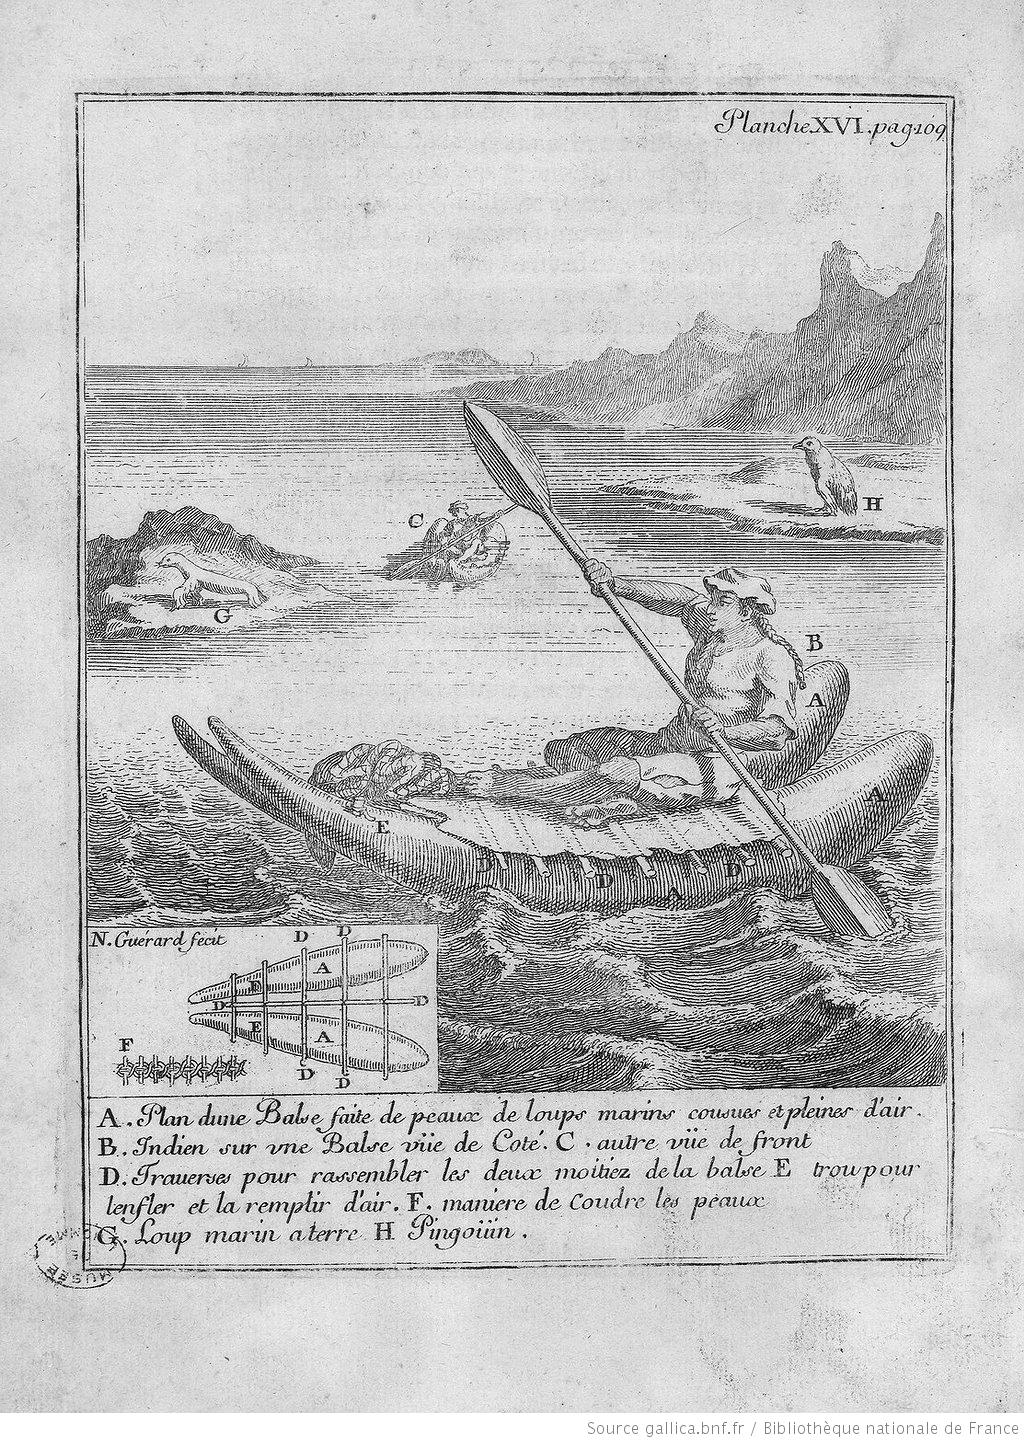 Planche XVI. pag 109
C
H
G
B
A
A
E
D
D
D
A
N. Guérard fecit
D D
A
E
D D
E
A
F
D
D
A. Plan dune Balse faite de peaux de loups marins cousues et pleines d'air.
B. Indien sur vne Balse vüe de Coté. C. autre vüe de front
D. Trauerses pour rassembler les deux moitiez de la balse E trou pour
lenfler et la remplir d'air. F. maniere de coudre les peaux
G. Loup marin a terre H Pingoüin.
MUSÉE DE L'HOMME
Source gallica.bnf.fr / Bibliothèque nationale de France